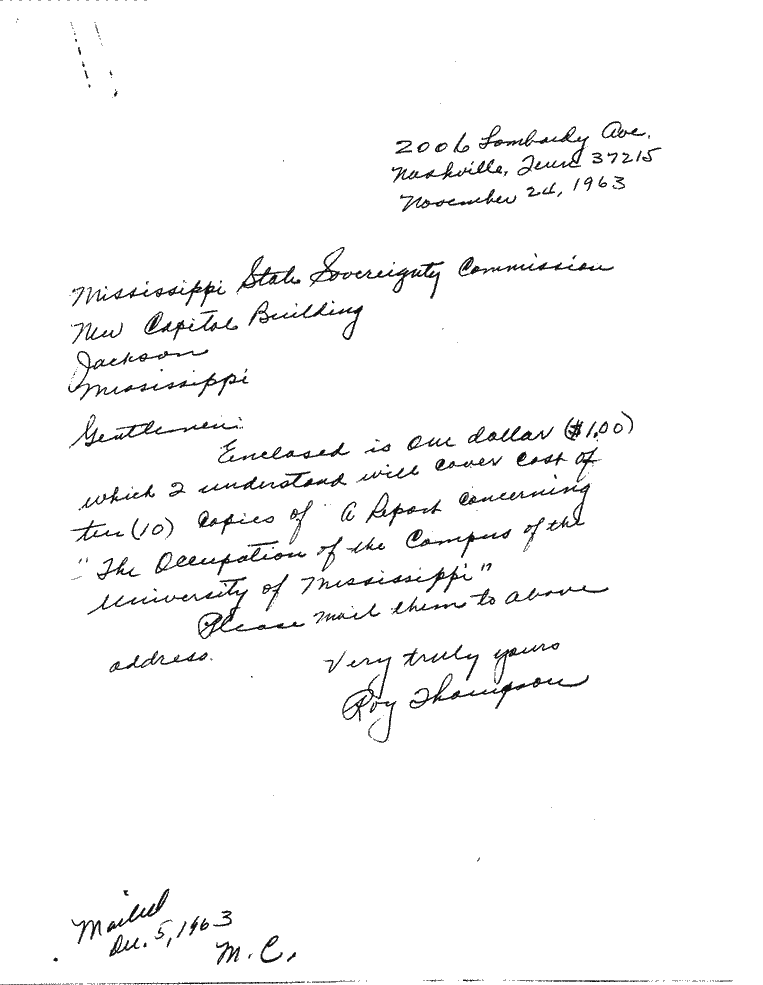 2006 Lombardy Ave.
Nashville, Tenn 37215
November 24, 1963
Mississippi State Sovereignty Commission
New Capitol Building
Jackson
Mississippi
Gentlemen:
Enclosed is one dollar ($1.00)
which I understand will cover cost of
ten (10) copies of "A Report concerning
"The Occupation of the Campus of the
University of Mississippi"
Please mail them to above
address.
Very truly yours
Roy Thompson
Mailed
Dec. 5, 1963
M. C.